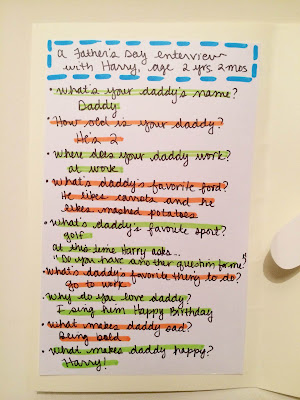 a Father's Day interview
with Harry, age 2 yrs 2 mos
• what's your daddy's name?
Daddy
• How old is your daddy?
He's 2
• where does your daddy work?
at work
• what's daddy's favorite food?
He likes carrots and he
likes mashed potatoes
• what's daddy's favorite sport?
golf
at this time Harry asks...
"Do you have another question for me?"
• what's daddy's favorite thing to do?
Go to work
• why do you love daddy?
I sing him Happy Birthday
• what makes daddy sad?
Being bold
• what makes daddy happy?
Harry!